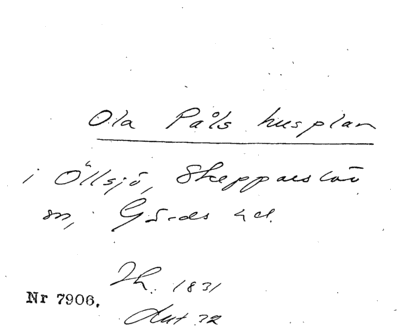 Ola Påls husplan
i Öllsjö, Skepparslöv
sn, Gärds hd.
Th. 1831
Nr 7906.